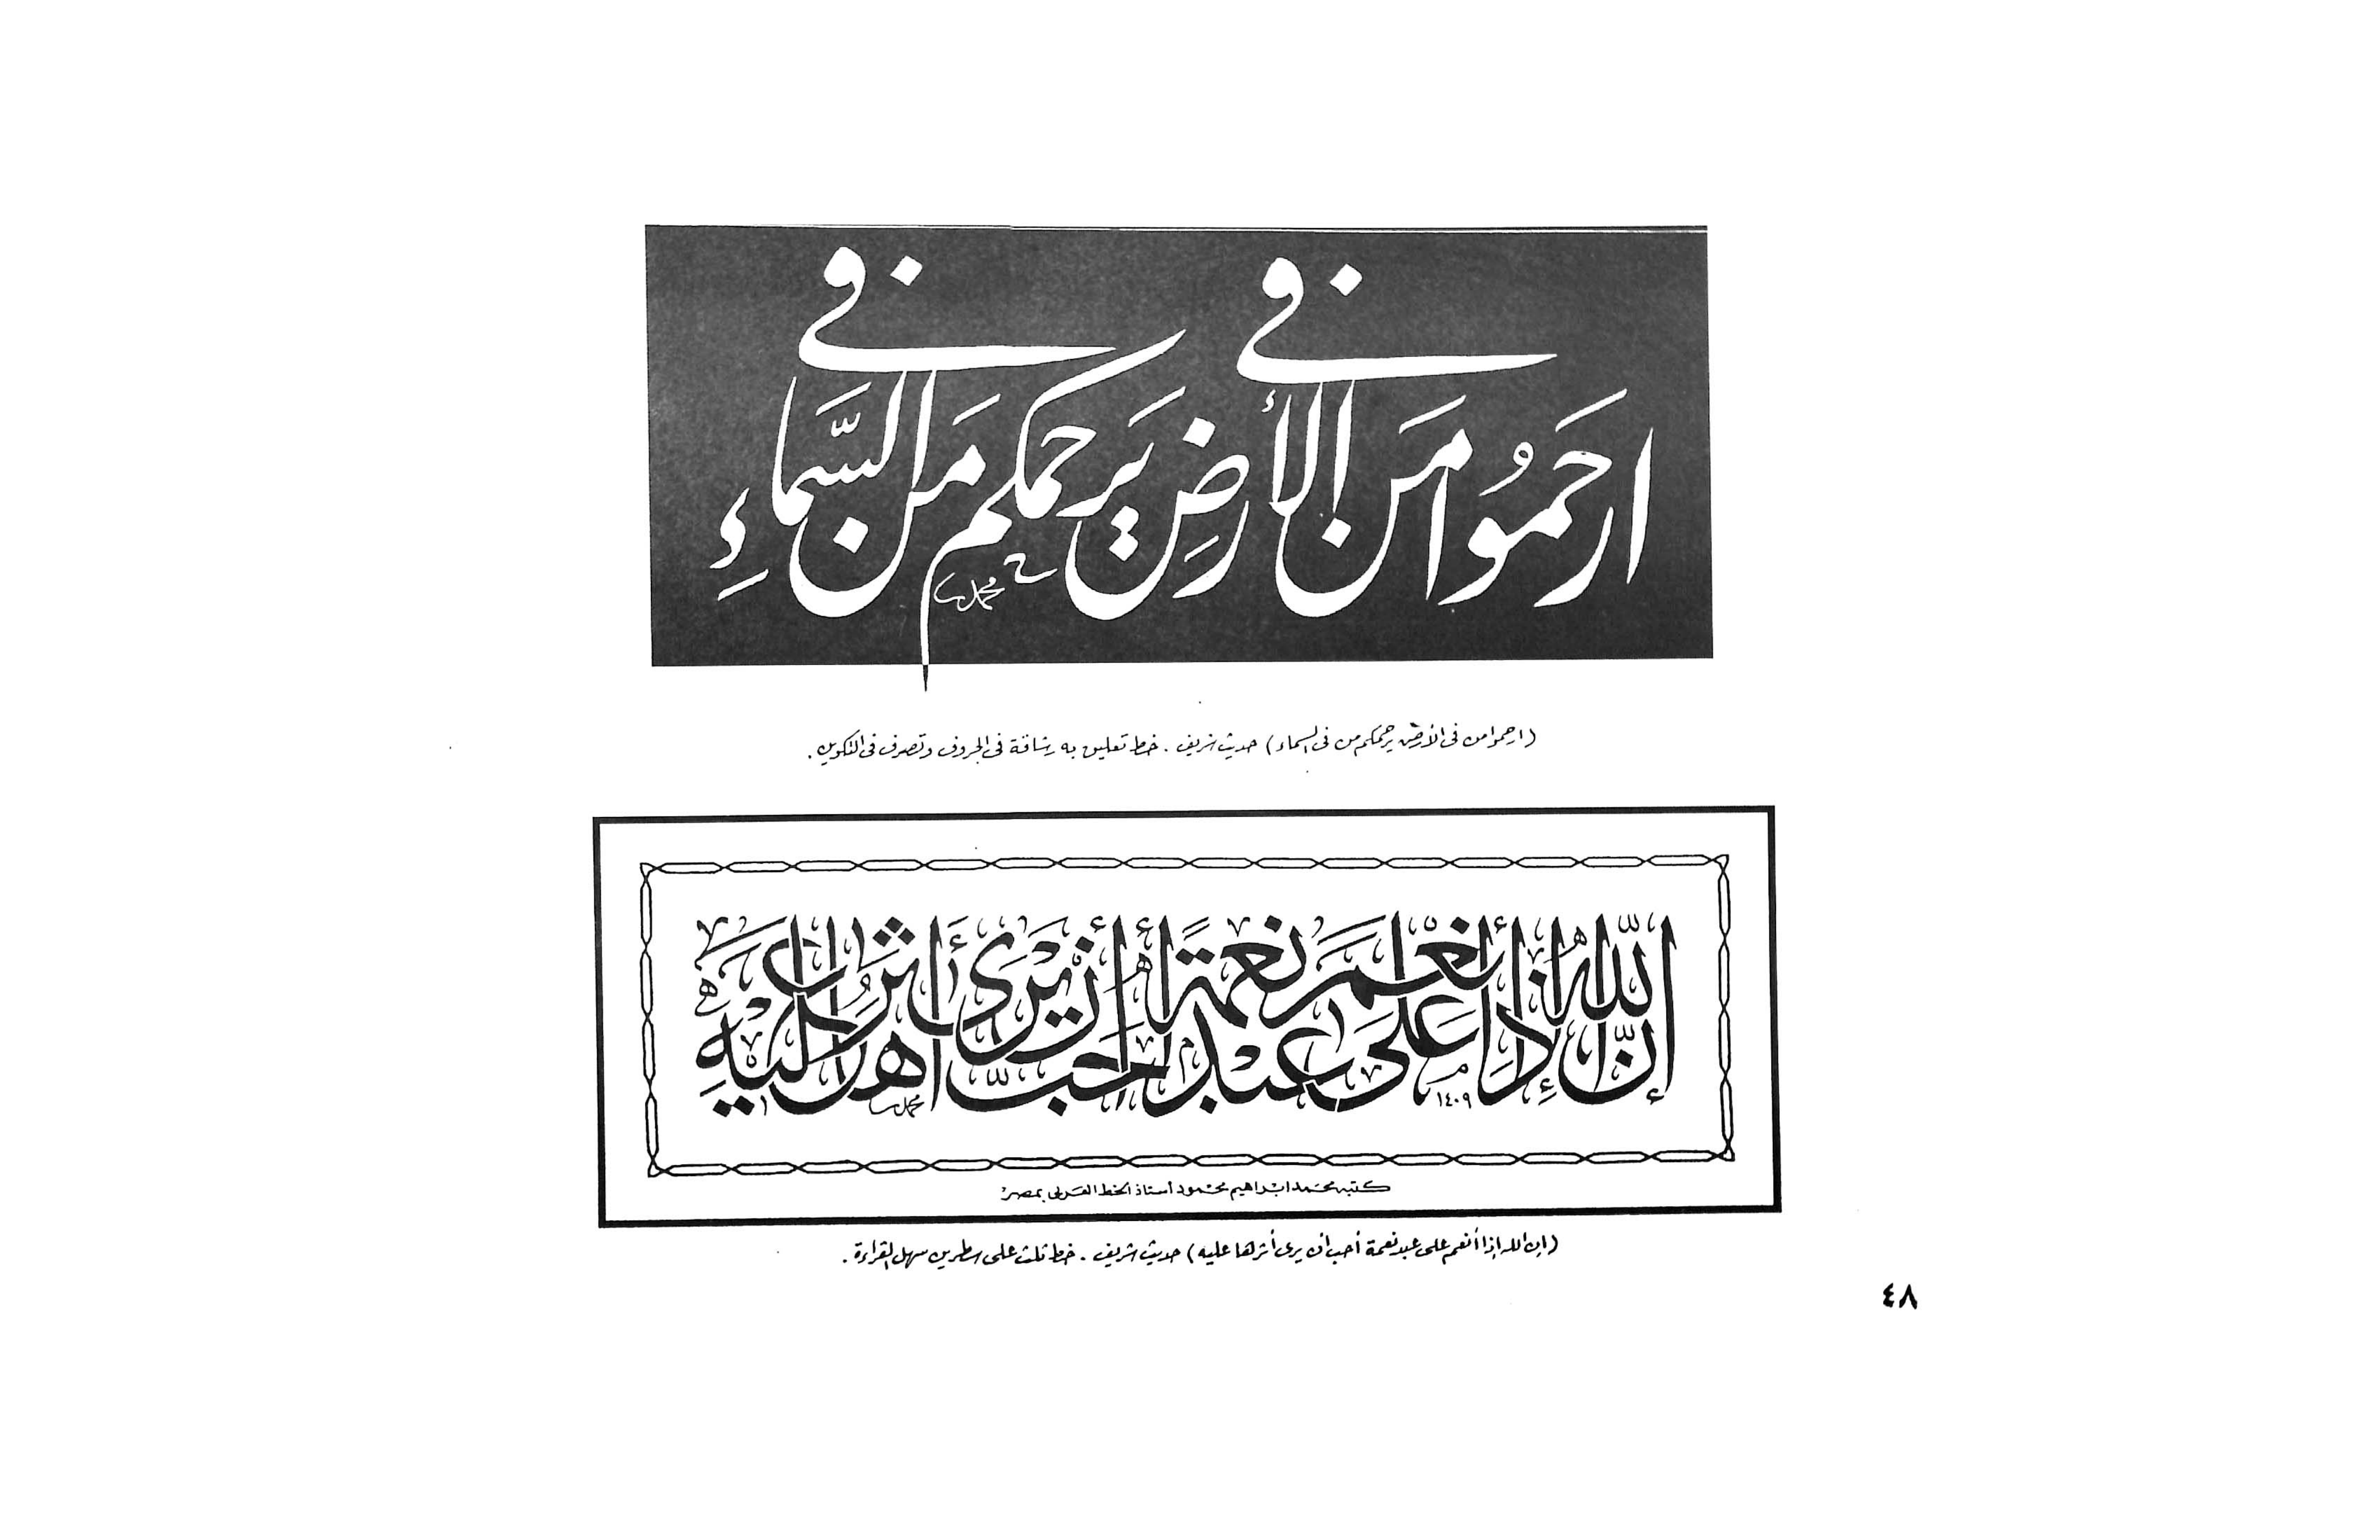 ارحَمُوا مَن فى الأرضِ يَرحمكم مَن فى السَّماءِ
محمد
(ارحموا من فى الأرض يرحمكم من فى السماء) حديث شريف . خط تعليق به رشاقة فى الحروف وتصرف فى التكوين .
إنّ اللّه إذا أنعَم عَلى عبد نعمةً أحبّ أن يَرى أثرها عليهِ
١٤٠٩
محمد
كتبه محمد ابراهيم محمود أستاذ الخط العربى بمصر
(إن الله إذا أنعم على عبد نعمة أحب أن يرى أثرها عليه) حديث شريف . خط ثلث على سطرين سهل القراءة .
٤٨